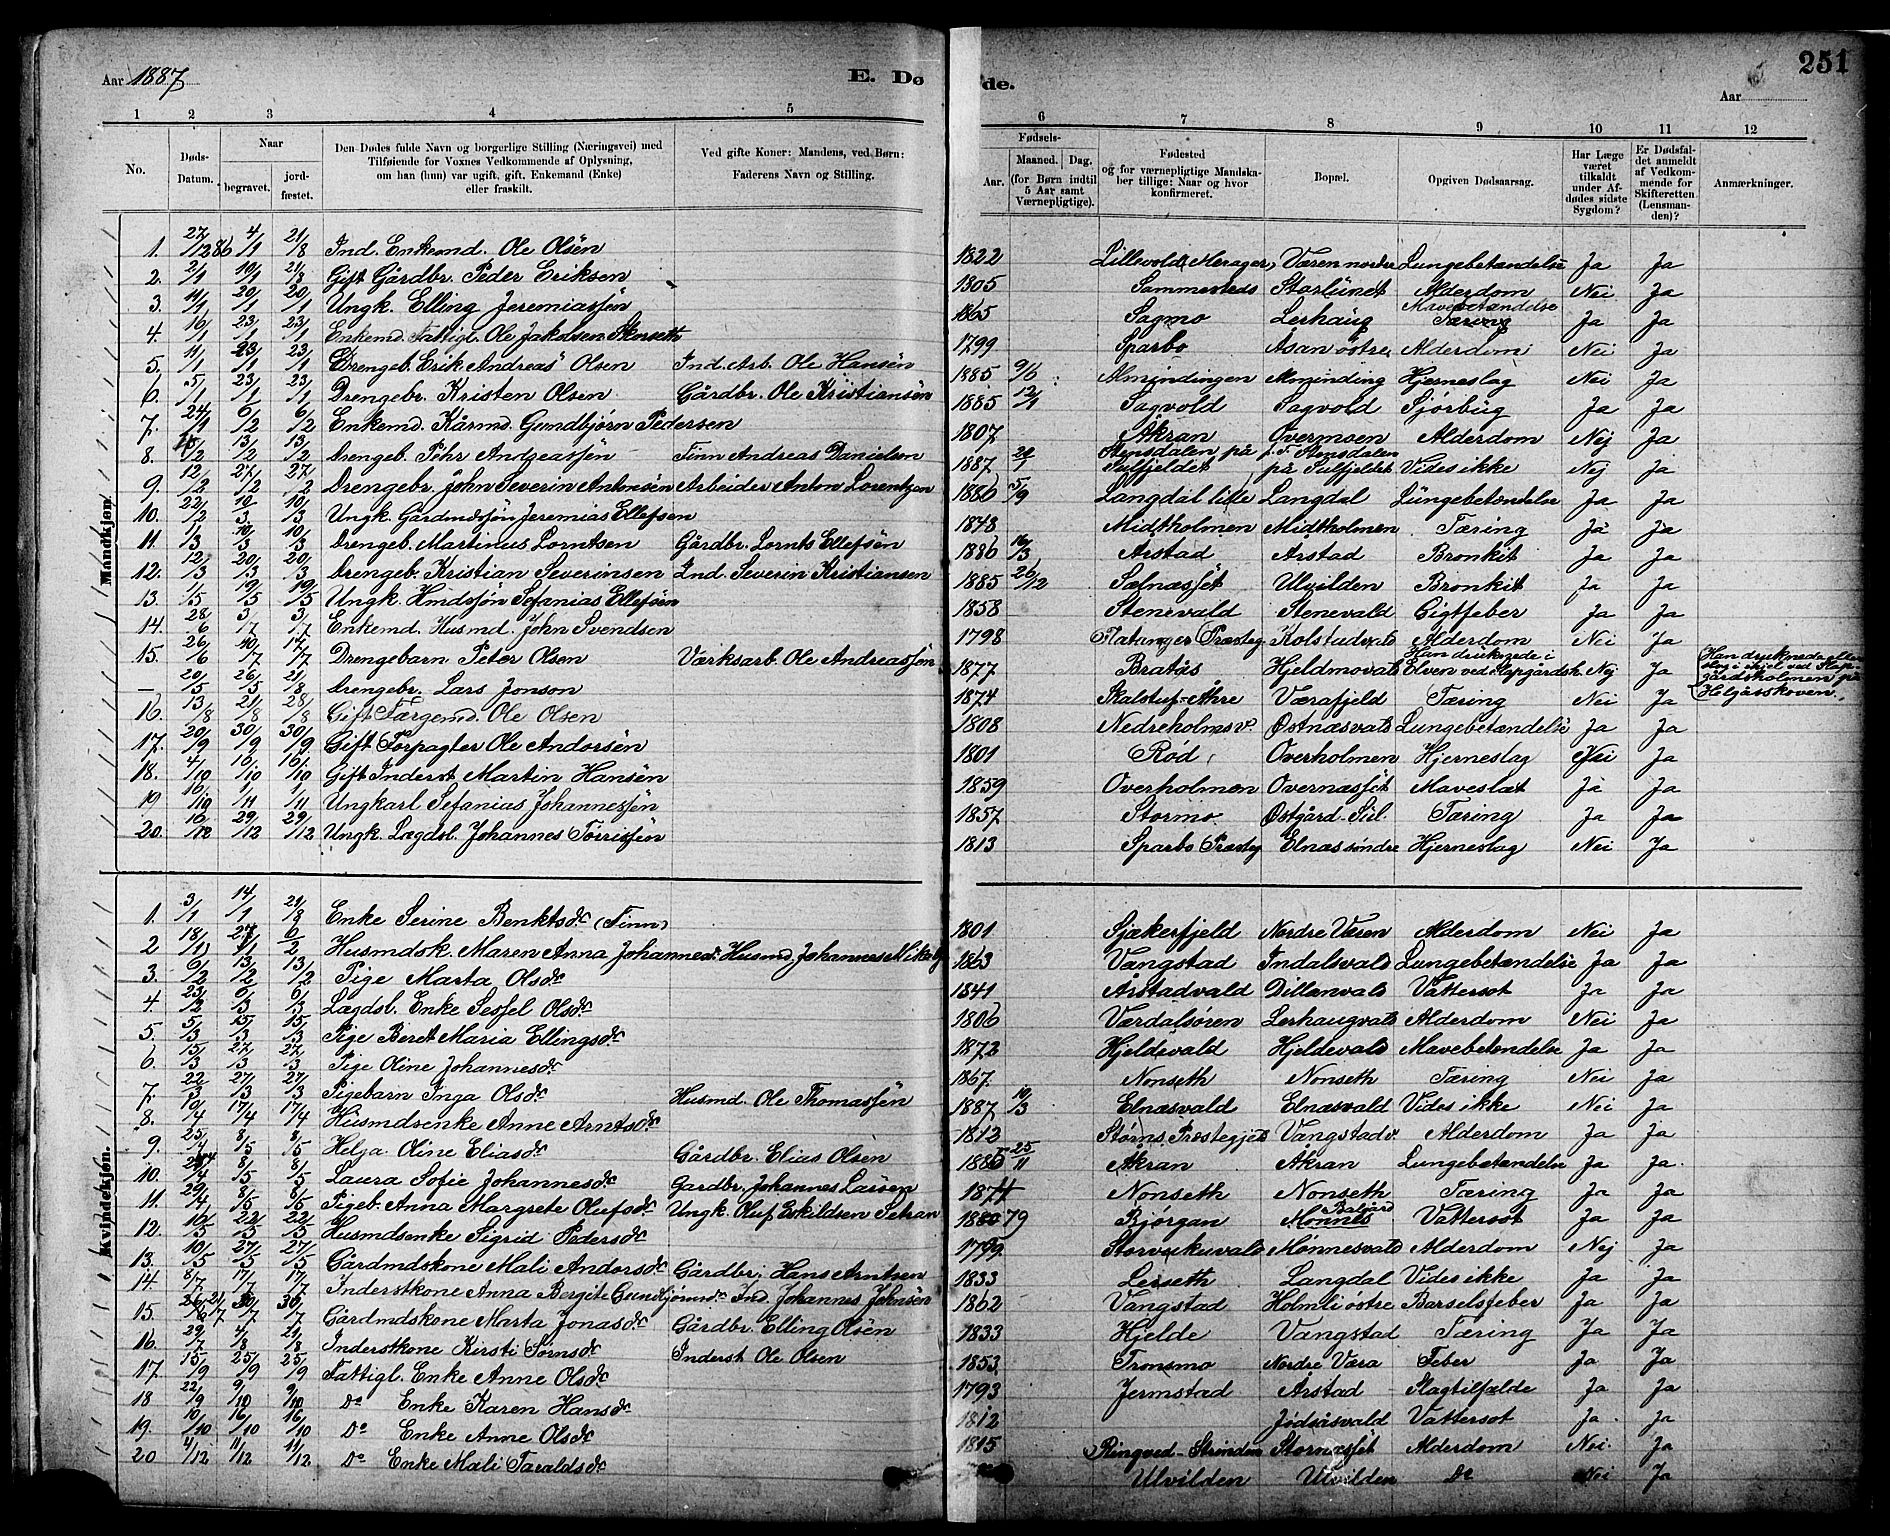 Aar 1887
E. Dø
de.
251
Aar
1 2 3 4 5 6 7 8 9 10 11 12
No.
Døds-Datum.
Naar
begravet.
jordfæstet.
Den Dødes fulde Navn og borgerlige Stilling (Næringsvei) med
Tilføiende for Voxnes Vedkommende af Oplysning,
om han (hun) var ugift, gift, Enkemand (Enke)
eller fraskilt.
Ved gifte Koner: Mandens, ved Børn:
Faderens Navn og Stilling.
Fødsels-
Aar.
Maaned. Dag.
(for Børn indtil
5 Aar samt
Værnepligtige).
Fødested
og for værnepligtige Mandska-
ber tillige: Naar og hvor
konfirmeret.
Bopæl.
Opgiven Dødsaarsag.
Har Læge
været
tilkaldt
under Af-
dødes sidste
Sygdom?
Er Dødsfal-
det anmeldt
af Vedkom-
mende for
Skifteretten
(Lensman-
den)?
Anmærkninger.
Mandkjøn.
1. 27/12 86 4/1 21/8 Ind. Enkemd. Ole Olsen 1822 Lillevold, Merager, Væren nordre Lungebetændelse Ja Ja
2. 2/1 10/1 21/8 Gift Gårdbr. Peder Eriksen 1805 Sammesteds Storlunet Alderdom Nei Ja
3. 11/1 20/1 20/1 Ungk. Elling Jeremiassøn 1865 Sagmo Lerhaug Mavebetændelse Tæring Ja Ja
4. 16/1 23/1 23/1 Enkemd. Fattigl. Ole Jakobsen 1799 Sparbo Åsan østre Alderdom Nei Ja
5. 11/1 23/1 23/1 Drengeb. Erik Andreas Olsen Ind. Arb. Ole Hansen 1885 9/6 Almindingen Alminding Hjerneslag Nei Ja
6. 5/1 23/1 23/1 Drengebr. Kristen Olsen Gårdbr. Ole Kristiansen 1885 12/1 Sagvold Sagvold Ja Ja
7. 24/1 6/2 6/2 Enkemd. Kårmd. Gundbjørn Pedersen 1807 Åkran Overmoen Alderdom Nej Ja
8. 13/2 13/2 Drengeb. Andreassøn Finn Andreas Danielsen 1887 Stensdalen på Sulfjeldet Stensdalen på Sulfjeldet Vides ikke Nej Ja
9. 12/2 27/2 27/2 Drengebr. John Severin Antonsen Arbeider Anton Lorentzen 1886 5/9 Langdal lille Langdal Lungebetændelse Ja Ja
10. 22/2 10/3 10/3 Ungk. Gårdmdssøn Jeremias Ellefsen 1848 Midtholmen Midtholmen Tæring Ja Ja
11. 1/3 10/3 10/3 Drengeb. Martinus Lorntsen Gårdbr. Lornts Ellefsen 1886 Årstad Årstad Bronkit Ja Ja
12. 12/3 20/3 20/3 Drengeb. Kristian Severinsen Ind. Severin Kristiansen 1885 26/12 Sælnæsset Ulvilden Bronkit Ja Ja
13. 1/5 19/5 19/5 Ungk. Hmdssøn Sefanias Ellefsen 1858 Stenevald Stenevald Gigtfeber Ja Ja
14. 28/6 3/7 3/7 Enkemd. Husmd. John Svendsen 1798 Alderdom Nei Ja
15. 26/6 10/7 17/7 Drengebarn Peter Olsen Værksarb. Ole Andreassøn 1877 Bratås Hjeldmovald Han druknede i Elven ved Nej Ja
— 20/5 26/5 21/8 Drengebr. Lars Jonson 1874 Værafjeld Tæring Nei Ja
16. 13/8 21/8 28/8 Gift Færgemd. Ole Olsen 1808 Nedreholmsv. Østnæsvald Lungebetændelse Ja Ja
17. 20/9 30/9 30/9 Gift Forpagter Ole Andorsen 1801 Rød Overholmen Hjerneslag Nei Ja
18. 4/10 16/10 16/10 Gift Inderst Martin Hansen 1859 Overholmen Overnæsset Ja Ja
19 16/10 1/11 1/11 Ungkarl Sefanias Johannessøn 1857 Stormo Østgård - Sul. Tæring Ja Ja
20. 16/12 29/12 29/12 Ungk. Lægdsl. Johannes Torrissøn 1813 Sparbo Præsteg Elnæs søndre Hjerneslag Nei Ja
Kvindekjøn.
1. 3/1 14/1 21/8 Enke Serine Benktsdr. (Finn) 1801 Sjækerfjeld Nordre Væren Alderdom Nei Ja
2 18/1 27/1 6/2 Husmdsk. Maren Anna Johannesdr. Husmd. Johannes 1863 Vangstad Indalsvald Lungebetændelse Ja Ja
3. 9/2 13/2 13/2 Pige Marta Olsdr. 1841 Årstadvald Dillanvald Vattersot Ja Ja
4. 23/2 6/3 6/3 Lægdsl. Enke Sessel Olsdr. 1806 Værdalsøren Lerhaugvald Alderdom Nei Ja
5. 5/3 15/3 15/3 Pige Beret Maria Ellingsdr. 1872 Hjeldevald Hjeldevald Mavebetændelse Ja Ja
6. 15/3 27/3 27/3 Pige Oline Johannesdr. 1867 Nonseth Nonseth Tæring Nei Ja
7. 22/3 27/3 27/3 Pigebarn Inga Olsdr. Husmd. Ole Thomassøn 1887 10/3 Elnæsvald Elnæsvald Vides ikke Nei Ja
8. 10/4 17/4 17/4 Husmdsenke Anne Arntsdr. 1812 Størns Præstegjeld Vangstadv. Alderdom Ja Ja
9. 25/4 8/5 8/5 Helga Oline Eliasdr. Gårdbr. Elias Olsen 1885 25/11 Åkran Åkran Lungebetændelse Ja Ja
10. 8/5 8/5 Laura Sofie Johannesdr. Gardbr. Johannes Larsen Nonseth Nonseth Tæring Ja Ja
11. 29/4 8/5 8/5 Pigeb. Anna Margrete Olufsdr. Ungk. Oluf Eskildsen Setran 1880 79 Bjørgan Mønnes Vattersot Ja Ja
12. 10/5 22/5 22/5 Husmdsenke Sigrid Pedersdr. 1799. Storvukuvald Mønnesvald Alderdom Nej Ja
13. 10/5 27/5 27/5 Gårdmdskone Mali Andorsdr. Gårdbr. Hans Arntsen 1833 Lerseth Langdal Vides ikke Ja Ja
14. 8/7 17/7 17/7 Inderstkone Anna Bergite Gundbjørnsdr. Ind. Johannes Johnsen 1862 Vangstad Holmli østre Barselsfeber Ja Ja
15. 30/7 30/7 Gårdmdskone Marta Jonasdr. Gårdbr. Elling Olsen 1833 Hjelde Vangstad Tæring Ja Ja
16. 29/7 4/8 21/8 Inderstkone Kirsti Tomsdr. Inderst Ole Olsen 1853. Tronsmo Nordre Væra Feber Ja Ja
17. 15/9 25/9 25/9 Fattigl. Enke Anne Olsdr. 1793 Jermstad Årstad Slagtilfælde Ja Ja
18 22/9 9/10 9/10 Do Enke Karen Hansdr. 1812 Jødåsvald Vattersot Ja Ja
19. 10/10 16/10 16/10 Do Enke Anne Olsdr. 1815 Ringved - Strinden Stornæsset Alderdom Nei. Ja
20 4/12 11/12 11/12 Do Enke Mali Taraldsdr. Ulvilden Ulvilden Do Nei Ja